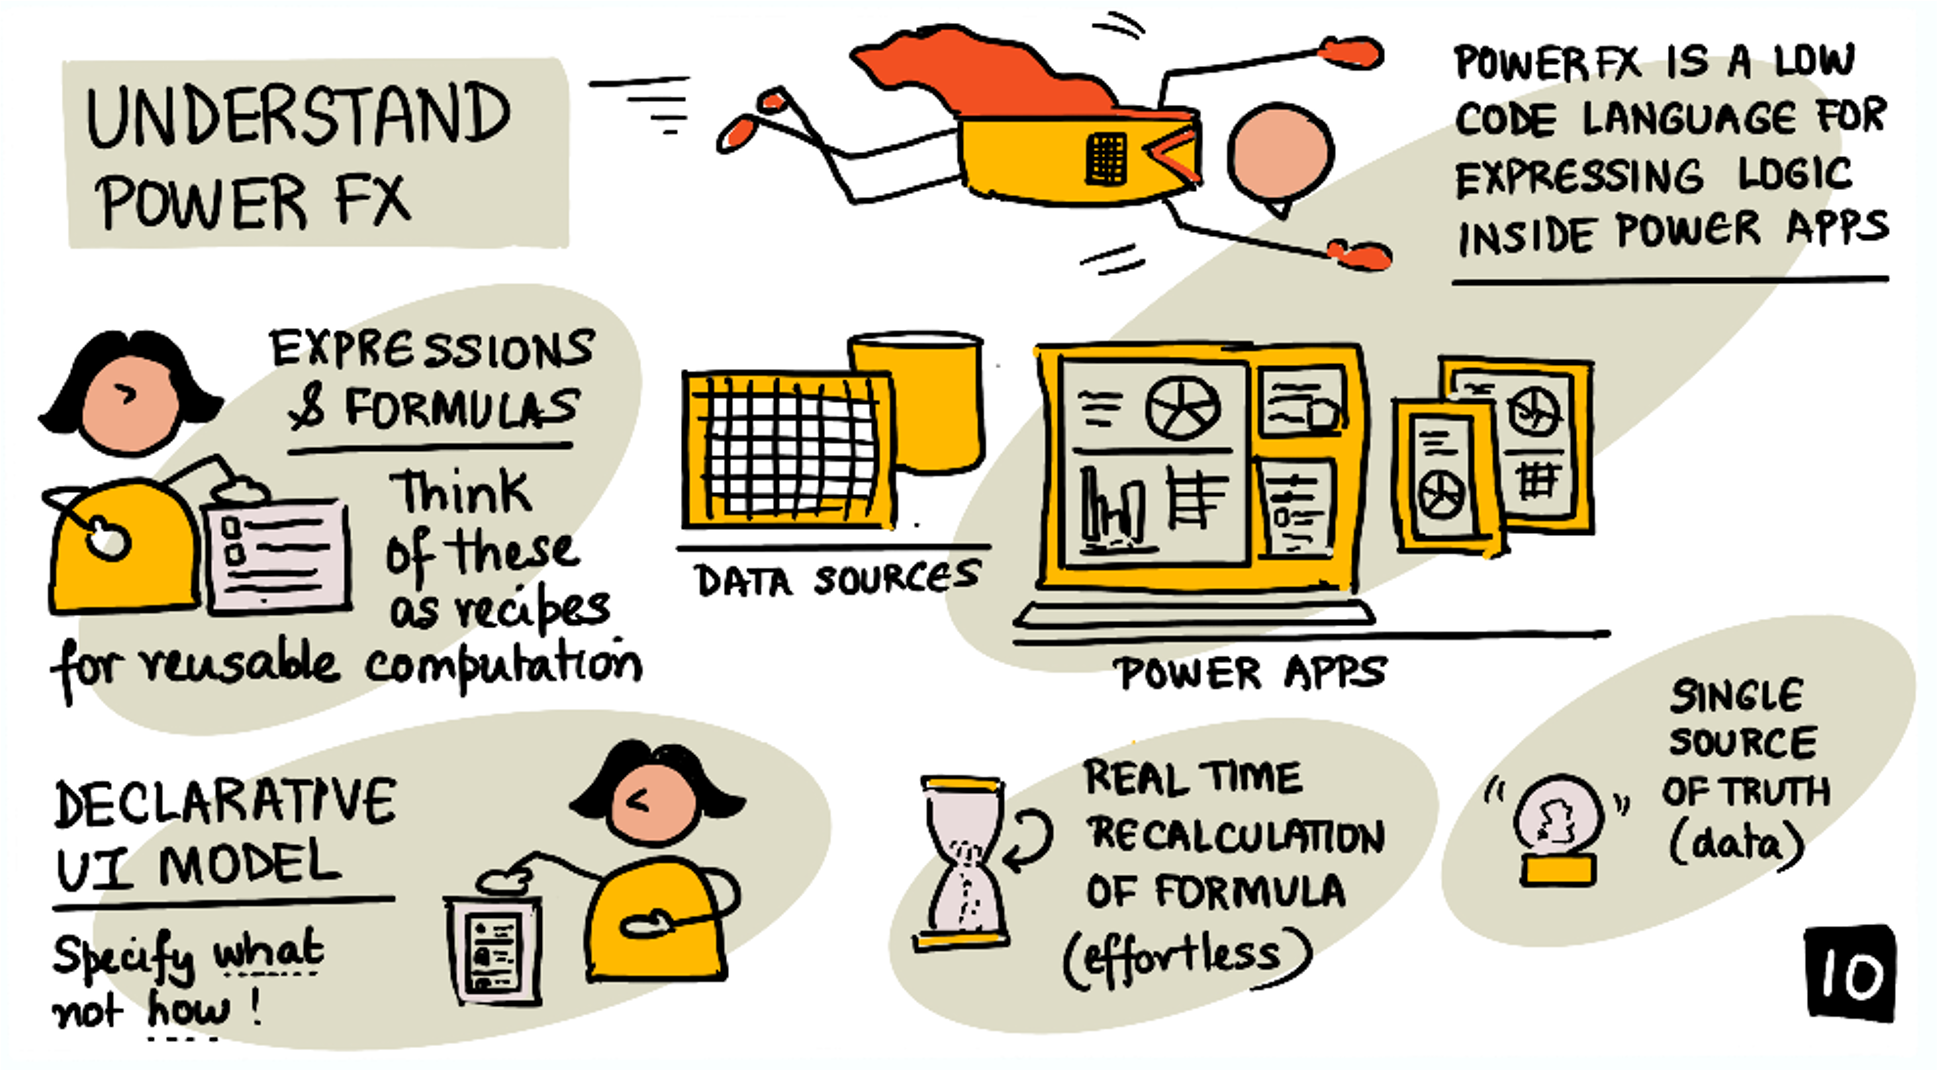 UNDERSTAND
POWER FX
POWER FX IS A LOW
CODE LANGUAGE FOR
EXPRESSING LOGIC
INSIDE POWER APPS
EXPRESSIONS
& FORMULAS
Think
of these
as recipes
for reusable computation
DATA SOURCES
POWER APPS
DECLARATIVE
UI MODEL
Specify what
not how!
REAL TIME
RECALCULATION
OF FORMULA
(effortless)
SINGLE
SOURCE
OF TRUTH
(data)
10